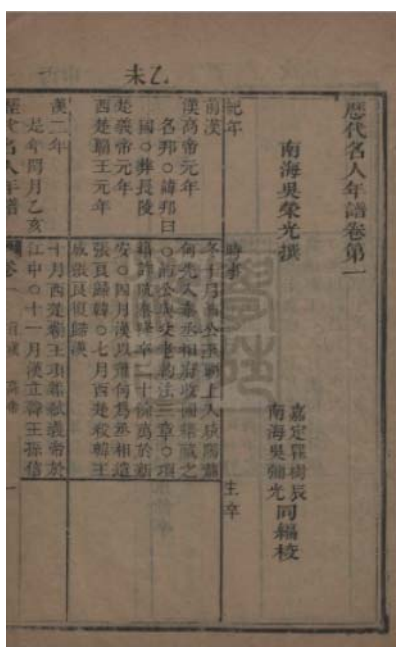 歷代名人年譜卷第一
南海吳榮光撰
嘉定瞿樹辰
南海吳彌光
同編校
紀年
時事
生卒
乙未
前漢
漢高帝元年
名邦○諱邦曰
國○葬長陵
楚義帝元年
西楚霸王元年
冬十月沛公至霸上入咸陽蕭
何先入秦丞相府收圖籍藏之
○沛公與父老約法三章○項
籍詐阬秦降卒二十餘萬於新
安○四月漢以蕭何爲丞相遣
張良歸韓○七月西楚殺韓王
成張良復歸漢
漢二年
是年閏月乙亥
十月西楚霸王項籍弒義帝於
江中○十一月漢立韓王孫信
歷代名人年譜
卷一
一